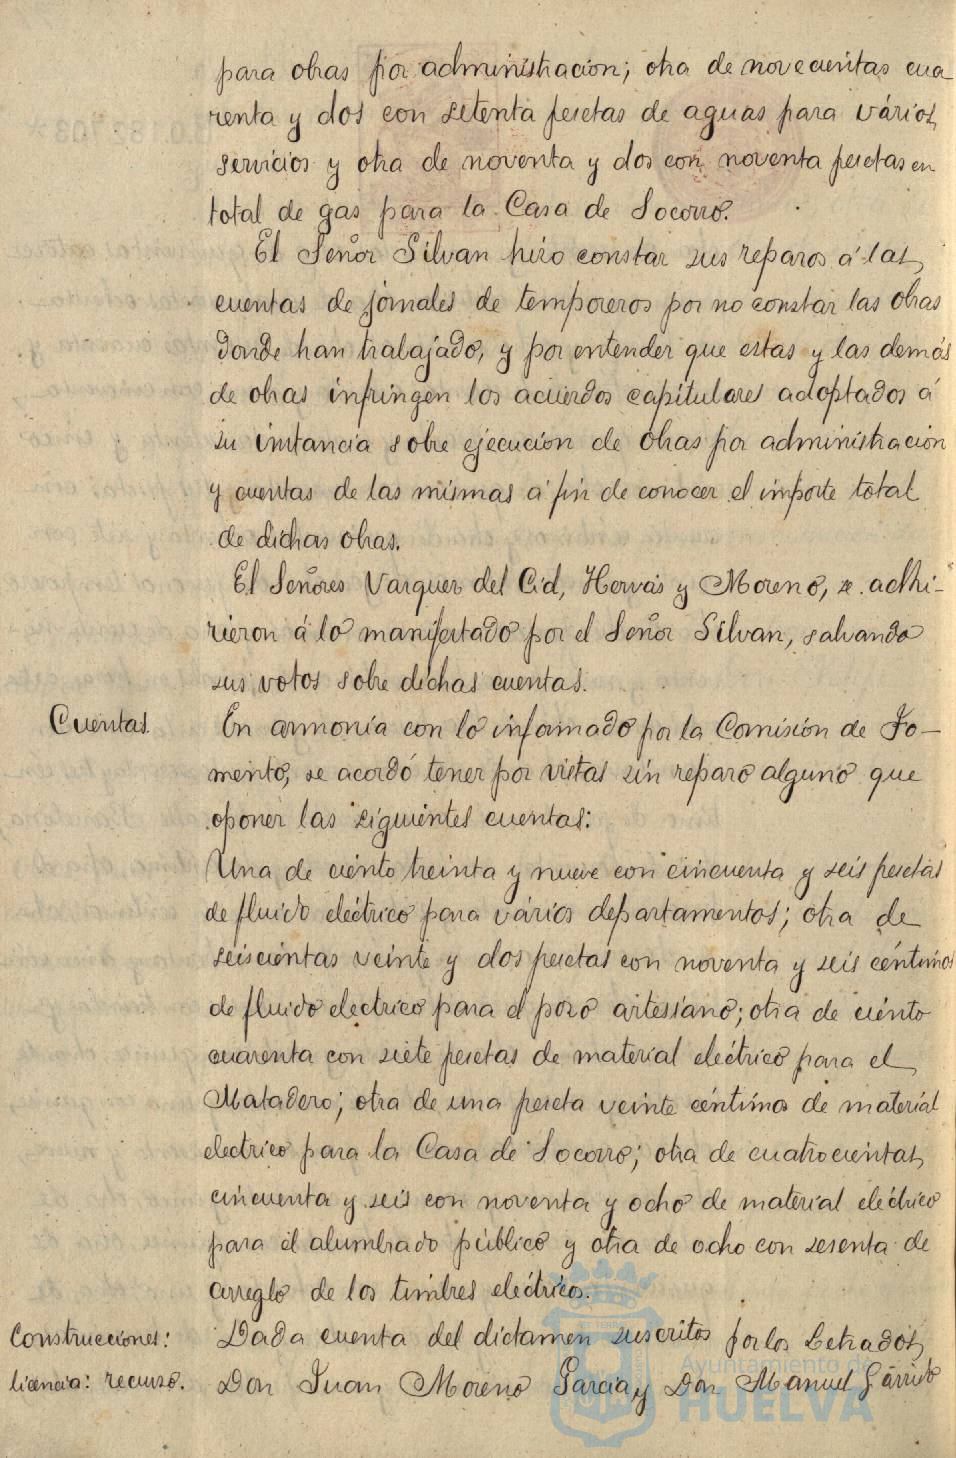 para obras por administración; otra de novecientas cua
renta y dos con setenta pesetas de aguas para vários
servicios y otra de noventa y dos con noventa pesetas en
total de gas para la Casa de Socorro.
El Señor Silvan hizo constar sus reparos á las
cuentas de jornales de temporeros por no constar las obras
donde han trabajado, y por entender que estas y las demás
de obras infringen los acuerdos capitulares adoptados á
su instancia sobre ejecución de obras por administración
y cuentas de las mismas á fin de conocer el importe total
de dichas obras.
El Señores Vazquez del Cid, Hervás y Moreno, se adhi-
rieron á lo manifestado por el Señor Silvan, salvando
sus votos sobre dichas cuentas.
Cuentas. En armonía con lo informado por la Comisión de Fo-
mento, se acordó tener por vistas sin reparo alguno que
oponer las siguientes cuentas:
Una de ciento treinta y nueve con cincuenta y seis pesetas
de fluido eléctrico para vários departamentos; otra de
seiscientas veinte y dos pesetas con noventa y seis céntimos
de fluido electrico para el pozo artesiano; otra de ciento
cuarenta con siete pesetas de material eléctrico para el
Matadero; otra de una peseta veinte céntimos de material
electrico para la Casa de Socorro; otra de cuatrocientas
cincuenta y seis con noventa y ocho de material eléctrico
para el alumbrado público y otra de ocho con sesenta de
arreglo de los timbres eléctricos.
Construcciones: Dada cuenta del dictamen suscritos por los Letrados
licencia: recurso. Don Juan Moreno García y Don Manuel Garrido
Ayuntamiento de
HUELVA